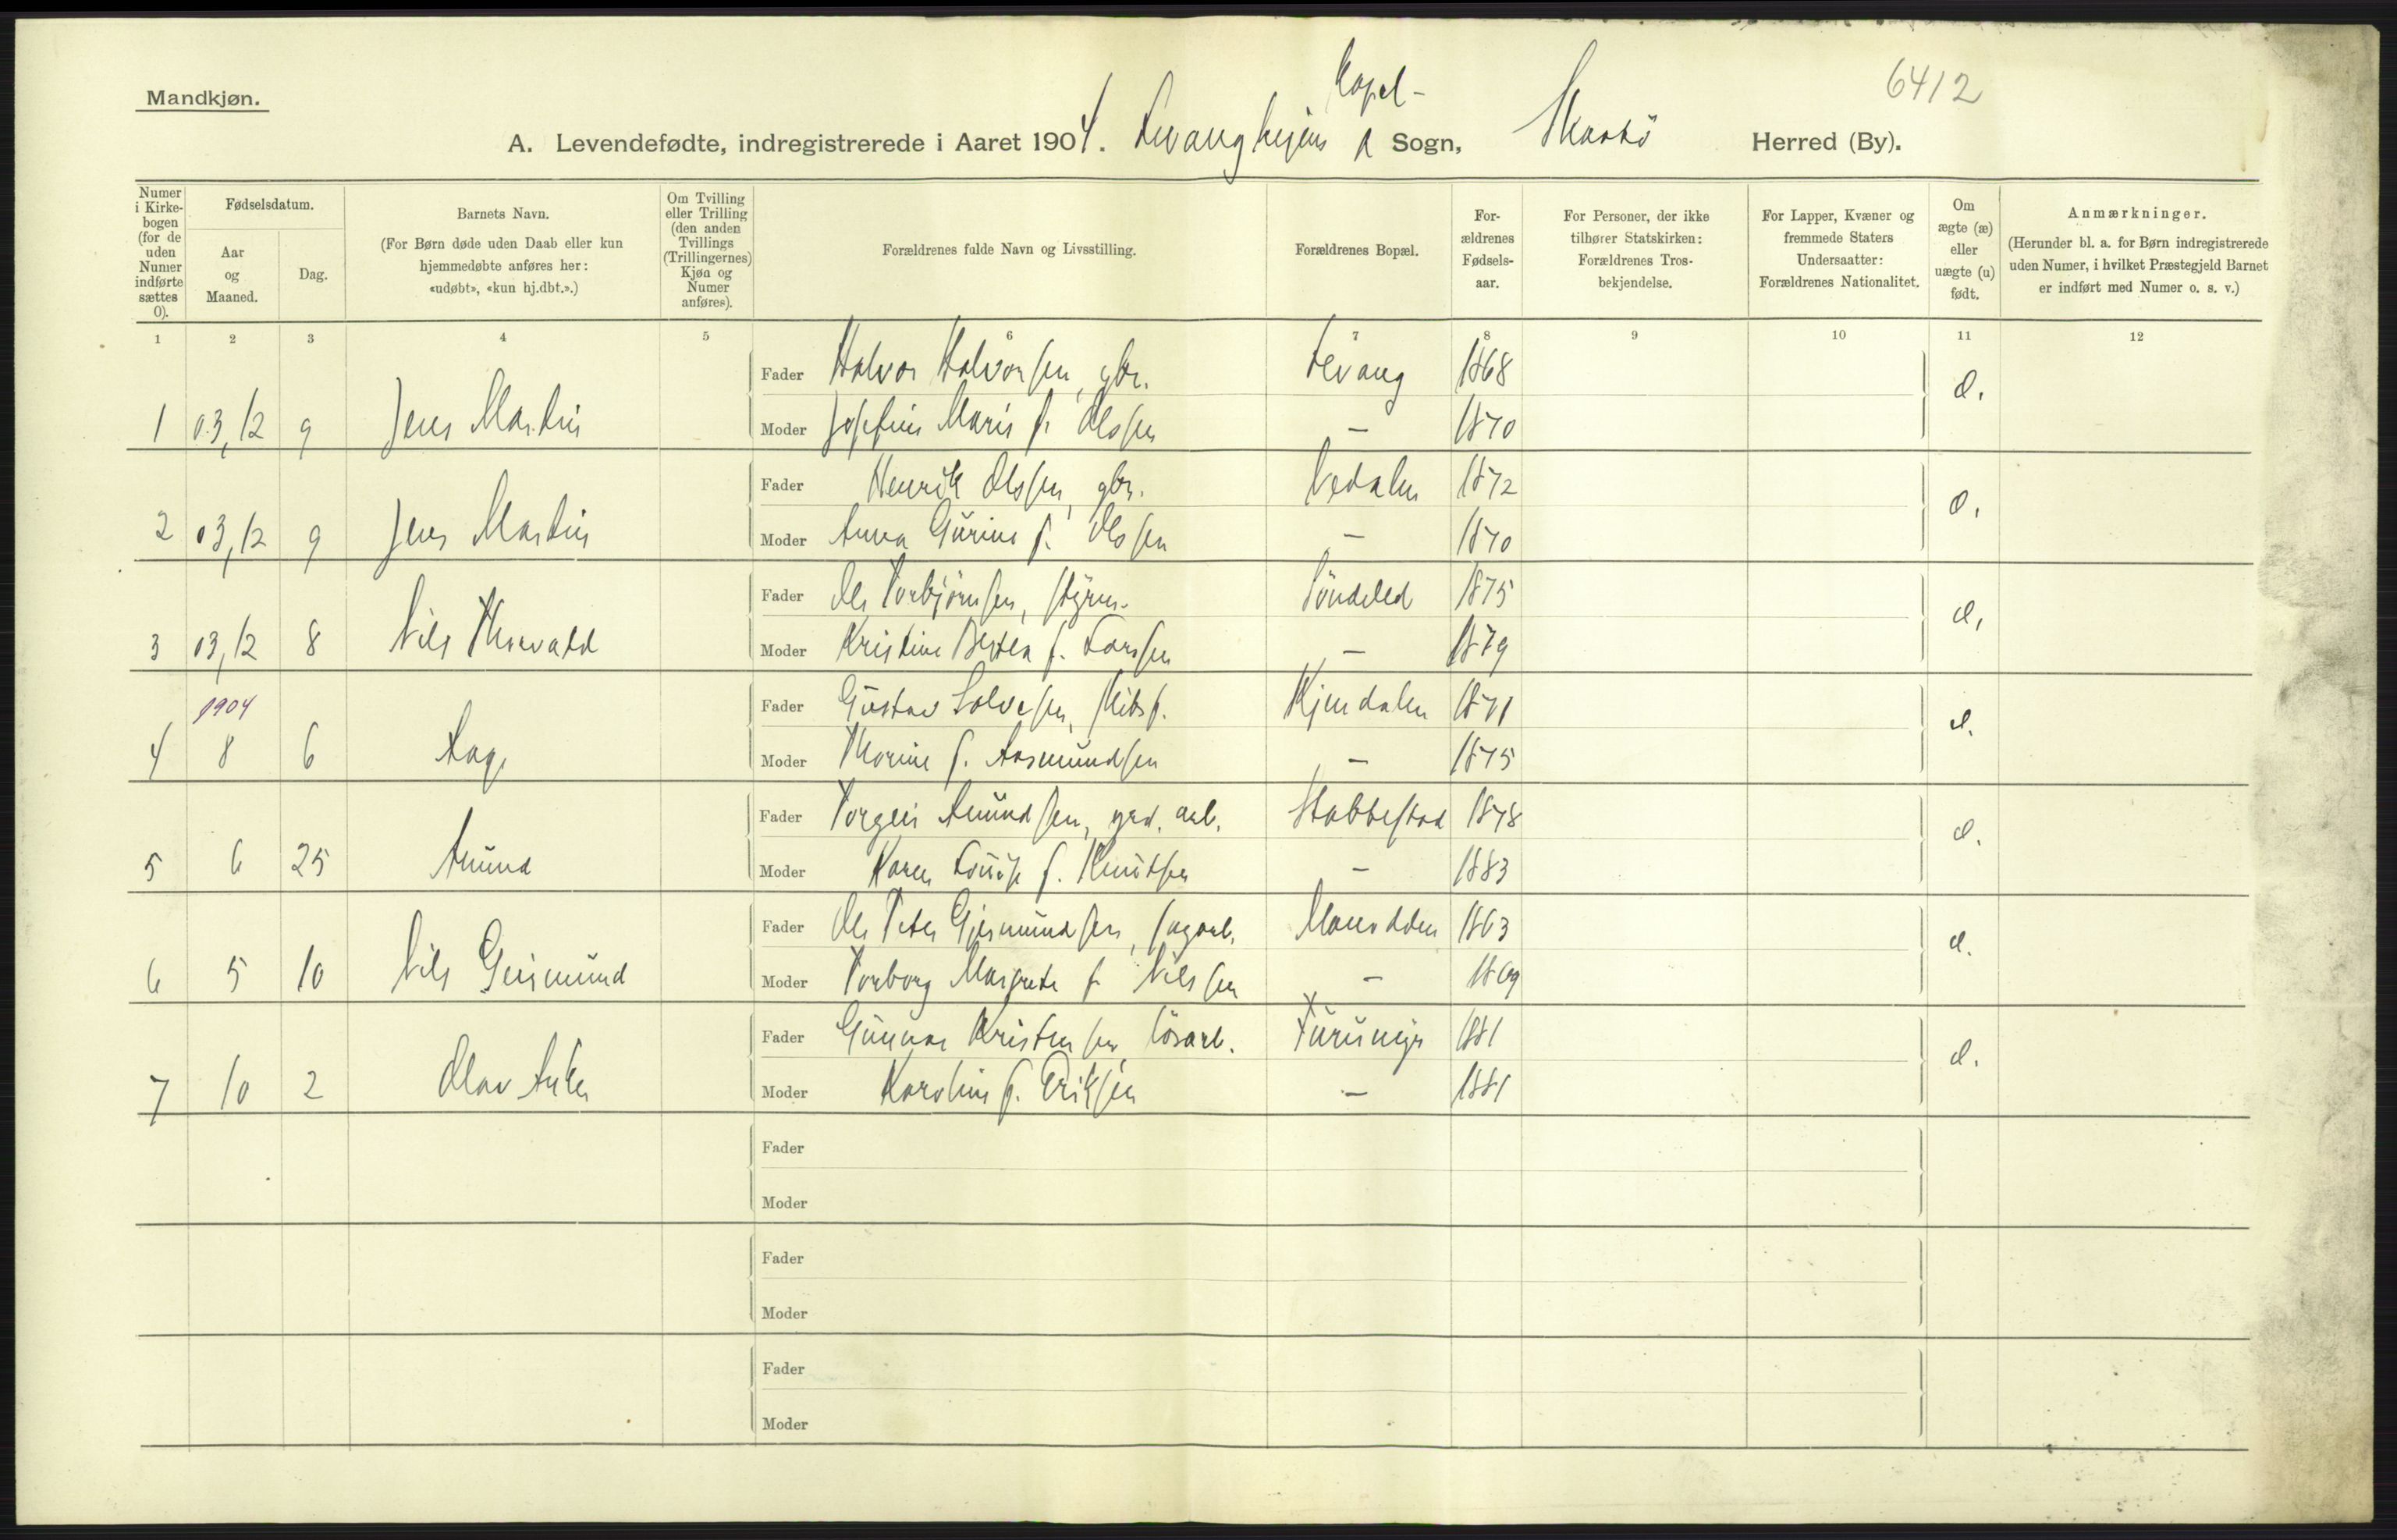 Mandkjøn.
6412
Kapel-
A. Levendefødte, indregistrerede i Aaret 1904. Levangheiens Sogn, Skaatø Herred (By).
Numer i Kirkebogen (for de uden Numer indførte sættes 0).
Fødselsdatum.
Aar og Maaned.
Dag.
Barnets Navn.
(For Børn døde uden Daab eller kun hjemmedøbte anføres her: «udøbt», «kun hj.dbt.».)
Om Tvilling eller Trilling (den anden Tvillings (Trillingernes) Kjøn og Numer anføres).
Forældrenes fulde Navn og Livsstilling.
Forældrenes Bopæl.
Forældrenes Fødselsaar.
For Personer, der ikke tilhører Statskirken: Forældrenes Trosbekjendelse.
For Lapper, Kvæner og fremmede Staters Undersaatter: Forældrenes Nationalitet.
Om ægte (æ) eller uægte (u) født.
Anmærkninger.
(Herunder bl. a. for Børn indregistrerede uden Numer, i hvilket Præstegjeld Barnet er indført med Numer o. s. v.)
1 2 3 4 5 6 7 8 9 10 11 12
Fader Halvor Halvorsen, gbr. Levang 1868
1 03,12 9 Jens Martin Moder Josefine Marie f. Olssen — 1870
Fader Henrik Olssen, gbr. Vedalen 1872
2 03,12 9 Jens Martin Moder Anna Gurine f. Olssen — 1870
Fader Ole Torbjørnsen, styrm. Söndeled 1875
3 03,12 8 Nils Thorvald Moder Kristine f. Larssen — 1879
1904
Fader Gustav Solvesen, skibsf. Kjendalen 1871
4 8 6 Aage Moder Thorine f. Aasmundsen — 1875
Fader Torgeir Amundsen, arb. Stabbestad 1878
5 6 25 Amund Moder Karen Louise f. Knutsen — 1883
Fader Ole Peter Gjermundsen, sagarb. 1863
6 5 10 Nils Geirmund Moder Torborg Margrete f. Nilssen — 1869
Fader Gunnar Kristensen, lösarb. Furumyr 1881
7 10 2 Olav Anker Moder Karoline f. Eriksen — 1881
Fader
Moder
Fader
Moder
Fader
Moder